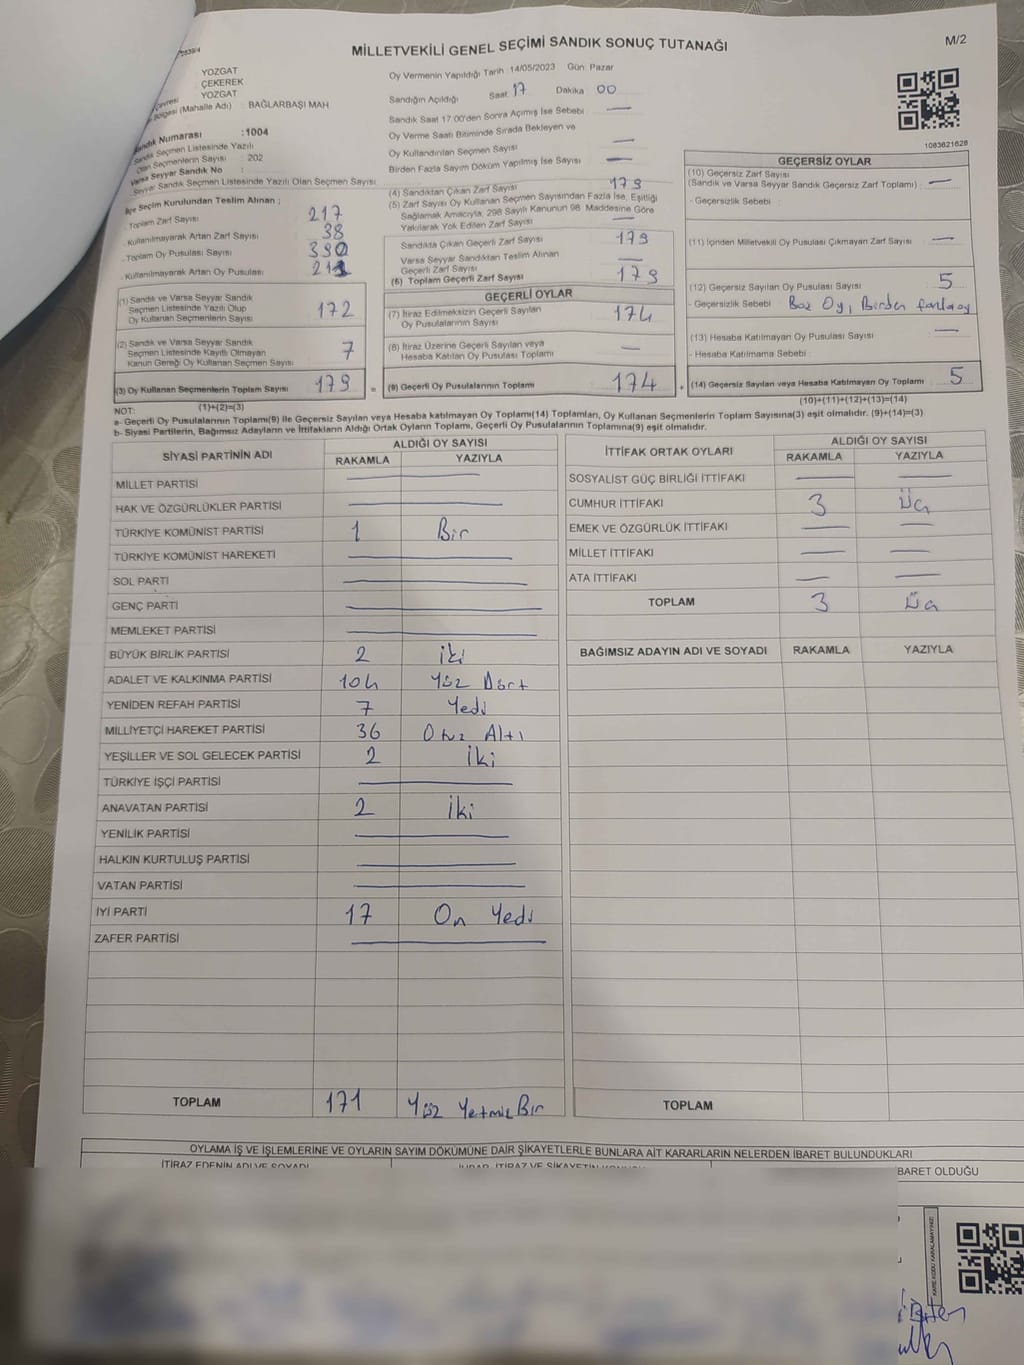 MİLLETVEKİLİ GENEL SEÇİMİ SANDIK SONUÇ TUTANAĞI
M/2
YOZGAT
ÇEKEREK
YOZGAT
Bölgesi (Mahalle Adı) : BAĞLARBAŞI MAH
Sandık Numarası :1004
Sandık Seçmen Listesinde Yazılı
Olan Seçmenlerin Sayısı : 202
Varsa Seyyar Sandık No :
Seyyar Sandık Seçmen Listesinde Yazılı Olan Seçmen Sayısı
İlçe Seçim Kurulundan Teslim Alınan ;
- Toplam Zarf Sayısı 217
- Kullanılmayarak Artan Zarf Sayısı 38
- Toplam Oy Pusulası Sayısı 390
- Kullanılmayarak Artan Oy Pusulası 211
(1) Sandık ve Varsa Seyyar Sandık
Seçmen Listesinde Yazılı Olup
Oy Kullanan Seçmenlerin Sayısı 172
(2) Sandık ve Varsa Seyyar Sandık
Seçmen Listesinde Kayıtlı Olmayan
Kanun Gereği Oy Kullanan Seçmen Sayısı 7
(3) Oy Kullanan Seçmenlerin Toplam Sayısı 179
(1)+(2)=(3)
Oy Vermenin Yapıldığı Tarih :14/05/2023 Gün: Pazar
Sandığın Açıldığı Saat 17 Dakika 00
Sandık Saat 17:00'den Sonra Açımış İse Sebebi —
Oy Verme Saati Bitiminde Sırada Bekleyen ve
Oy Kullandırılan Seçmen Sayısı —
Birden Fazla Sayım Döküm Yapılmış İse Sayısı —
(4) Sandıktan Çıkan Zarf Sayısı 179
(5) Zarf Sayısı Oy Kullanan Seçmen Sayısından Fazla İse, Eşitliği
Sağlamak Amacıyla, 298 Sayılı Kanunun 98. Maddesine Göre
Yakılarak Yok Edilen Zarf Sayısı —
Sandıkta Çıkan Geçerli Zarf Sayısı 179
Varsa Seyyar Sandıktan Teslim Alınan
Geçerli Zarf Sayısı —
(6) Toplam Geçerli Zarf Sayısı 179
GEÇERLİ OYLAR
(7) İtiraz Edilmeksizin Geçerli Sayılan
Oy Pusulalarının Sayısı 174
(8) İtiraz Üzerine Geçerli Sayılan veya
Hesaba Katılan Oy Pusulası Toplamı —
= (9) Geçerli Oy Pusulalarının Toplamı 174
1083621628
GEÇERSİZ OYLAR
(10) Geçersiz Zarf Sayısı
(Sandık ve Varsa Seyyar Sandık Geçersiz Zarf Toplamı) : —
- Geçersizlik Sebebi :
(11) İçinden Milletvekili Oy Pusulası Çıkmayan Zarf Sayısı —
(12) Geçersiz Sayılan Oy Pusulası Sayısı 5
- Geçersizlik Sebebi Boz Oy, Birden fazla oy
(13) Hesaba Katılmayan Oy Pusulası Sayısı —
- Hesaba Katılmama Sebebi
(14) Geçersiz Sayılan veya Hesaba Katılmayan Oy Toplamı 5
(10)+(11)+(12)+(13)=(14)
NOT:
a- Geçerli Oy Pusulalarının Toplamı(9) ile Geçersiz Sayılan veya Hesaba katılmayan Oy Toplamı(14) Toplamları, Oy Kullanan Seçmenlerin Toplam Sayısına(3) eşit olmalıdır. (9)+(14)=(3)
b- Siyasi Partilerin, Bağımsız Adayların ve İttifakların Aldığı Ortak Oyların Toplamı, Geçerli Oy Pusulalarının Toplamına(9) eşit olmalıdır.
SİYASİ PARTİNİN ADI ALDIĞI OY SAYISI
RAKAMLA YAZIYLA
MİLLET PARTİSİ —
HAK VE ÖZGÜRLÜKLER PARTİSİ —
TÜRKİYE KOMÜNİST PARTİSİ 1 Bir
TÜRKİYE KOMÜNİST HAREKETİ —
SOL PARTİ —
GENÇ PARTİ —
MEMLEKET PARTİSİ —
BÜYÜK BİRLİK PARTİSİ 2 iki
ADALET VE KALKINMA PARTİSİ 104 Yüz Dört
YENİDEN REFAH PARTİSİ 7 Yedi
MİLLİYETÇİ HAREKET PARTİSİ 36 Otuz Altı
YEŞİLLER VE SOL GELECEK PARTİSİ 2 iki
TÜRKİYE İŞÇİ PARTİSİ —
ANAVATAN PARTİSİ 2 iki
YENİLİK PARTİSİ —
HALKIN KURTULUŞ PARTİSİ —
VATAN PARTİSİ —
İYİ PARTİ 17 On Yedi
ZAFER PARTİSİ —
TOPLAM 171 Yüz Yetmiş Bir
İTTİFAK ORTAK OYLARI ALDIĞI OY SAYISI
RAKAMLA YAZIYLA
SOSYALİST GÜÇ BİRLİĞİ İTTİFAKI — —
CUMHUR İTTİFAKI 3 Üç
EMEK VE ÖZGÜRLÜK İTTİFAKI — —
MİLLET İTTİFAKI — —
ATA İTTİFAKI — —
TOPLAM 3 Üç
BAĞIMSIZ ADAYIN ADI VE SOYADI RAKAMLA YAZIYLA
TOPLAM
OYLAMA İŞ VE İŞLEMLERİNE VE OYLARIN SAYIM DÖKÜMÜNE DAİR ŞİKAYETLERLE BUNLARA AİT KARARLARIN NELERDEN İBARET BULUNDUKLARI
İTİRAZ EDENİN ADI VE SOYADI
BARET OLDUĞU